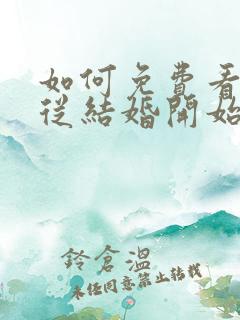 如何免費看
從結婚開始
鈴倉溫
未任同意禁止轉載